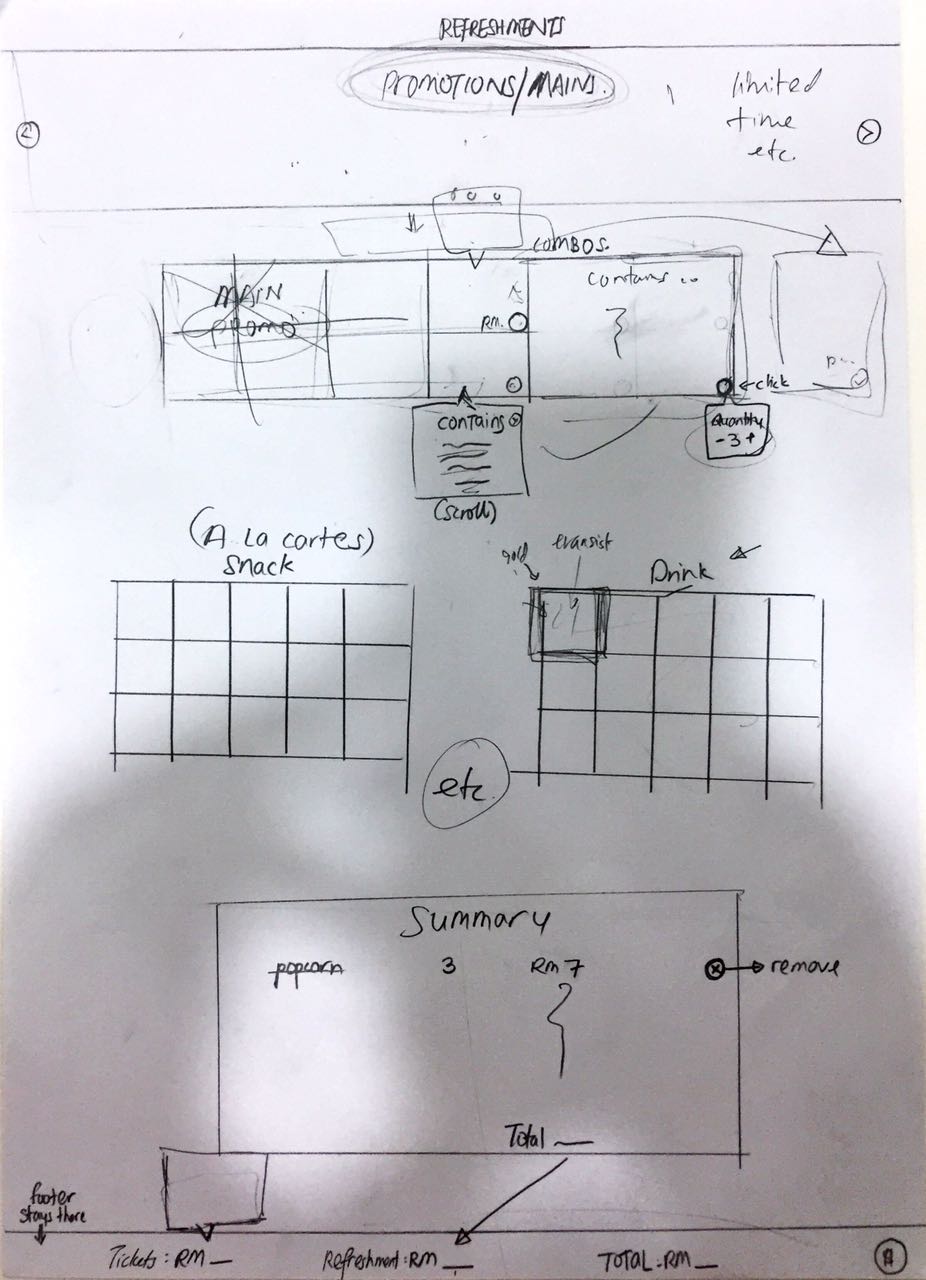 REFRESHMENTS
PROMOTIONS/MAINS.
limited
time
etc.
COMBOS.
MAIN
promo
contains ..
RM.
click
contains
Quantity
- 3 +
(scroll)
(A La cartes)
Snack
Drink
etc.
Summary
popcorn 3 RM 7
remove
Total __
footer
stays there
Tickets : RM __
Refreshment : RM __
TOTAL : RM __